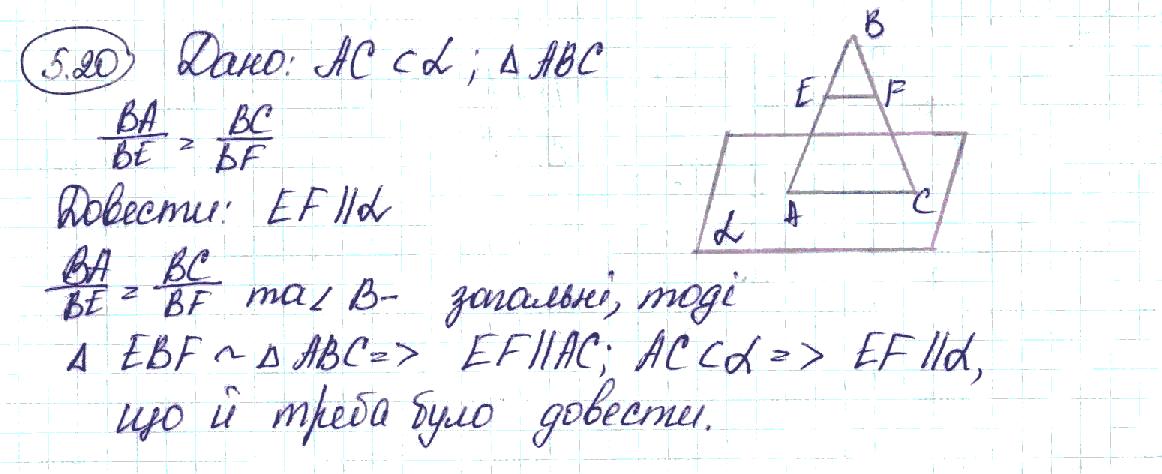 5.20 Дано: AC ⊂ α; Δ ABC
BA/BE = BC/BF
Довести: EF || α
BA/BE = BC/BF та ∠ B - загальні, тоді
Δ EBF ~ Δ ABC => EF || AC; AC ⊂ α => EF || α,
що й треба було довести.
B
E F
A C
α